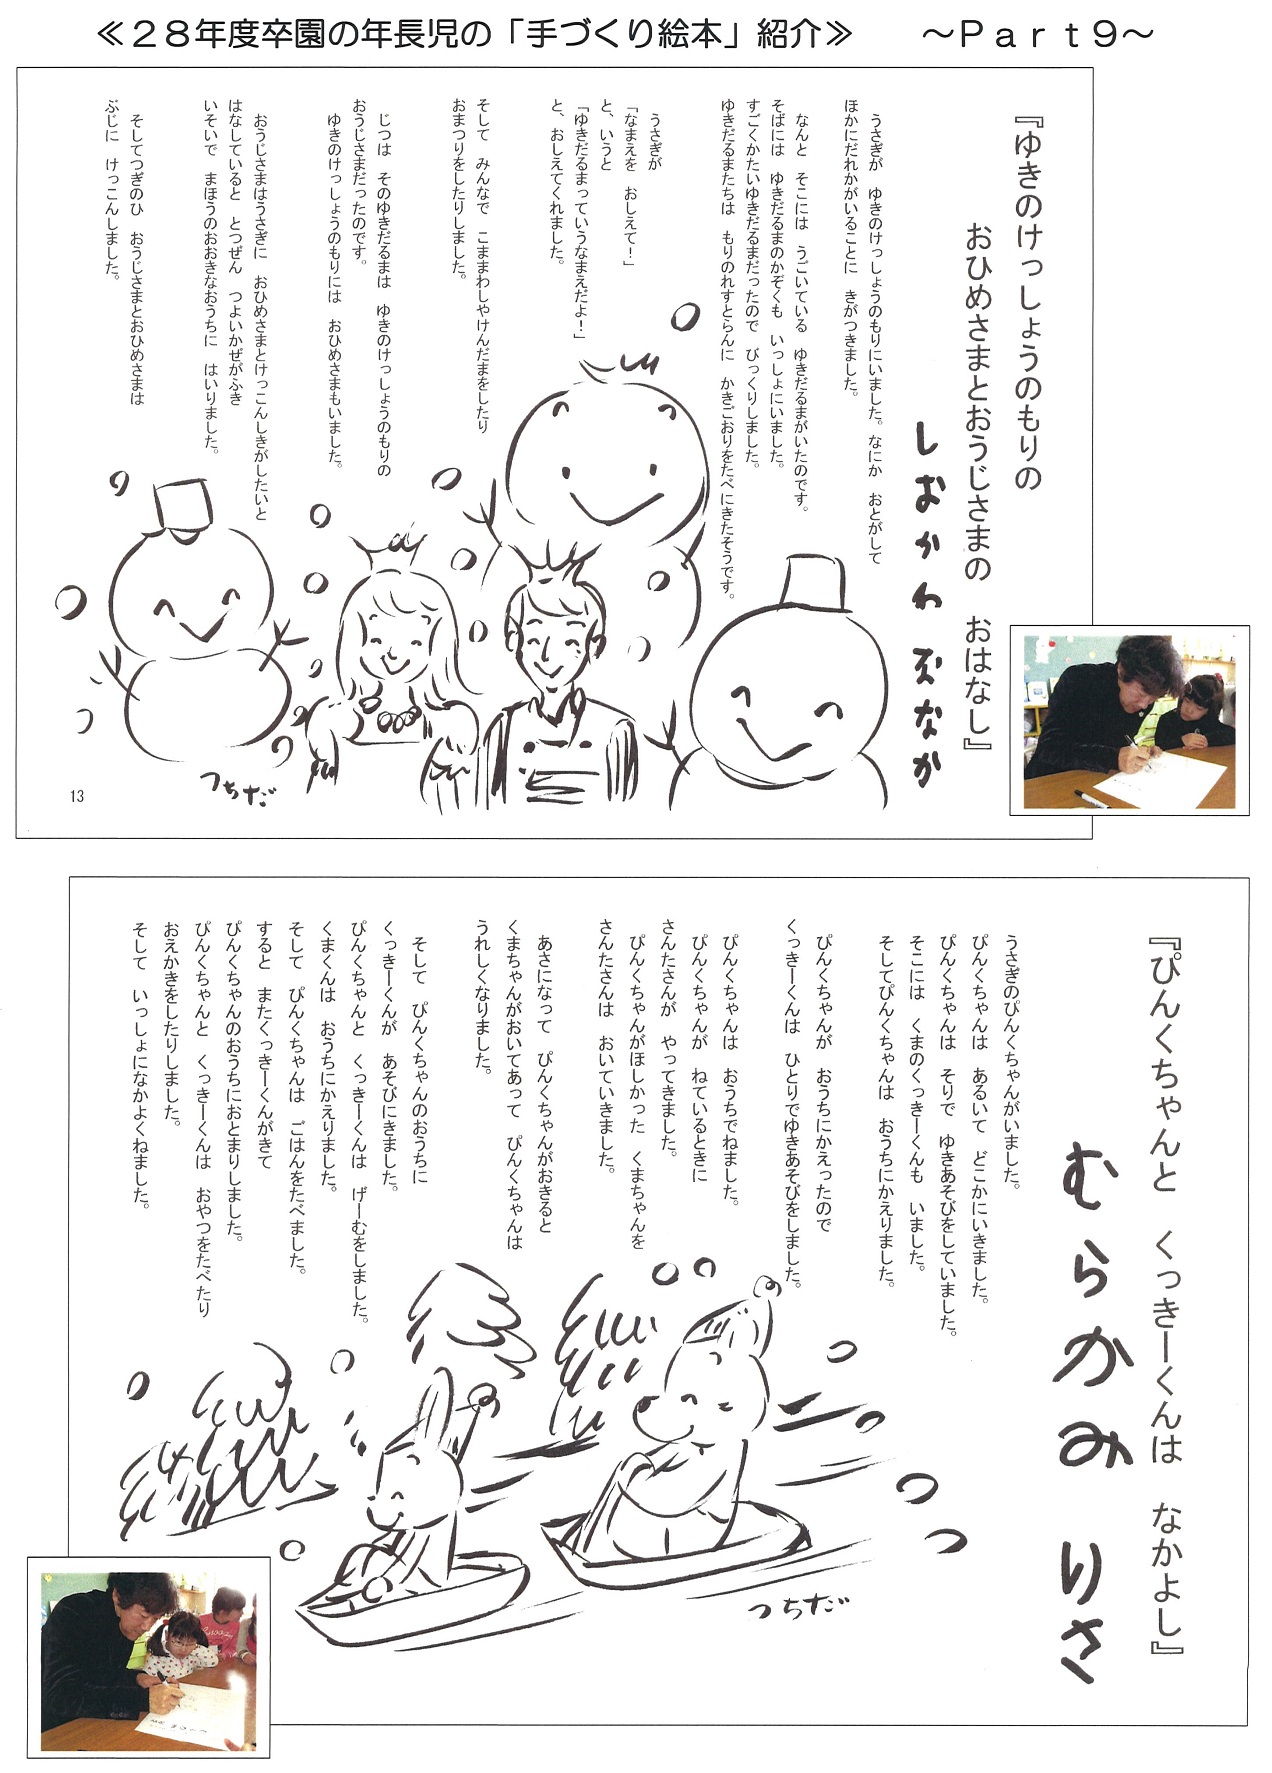 ≪２８年度卒園の年長児の「手づくり絵本」紹介≫　～Ｐａｒｔ９～
『ゆきのけっしょうのもりの
おひめさまとおうじさまの　おはなし』
しおかわ　まなか
うさぎが　ゆきのけっしょうのもりにいました。なにか　おとがして
ほかにだれかがいることに　きがつきました。
なんと　そこには　うごいている　ゆきだるまがいたのです。
そばには　ゆきだるまのかぞくも　いっしょにいました。
すごくかたいゆきだるまだったので　びっくりしました。
ゆきだるまたちは　もりのれすとらんに　かきごおりをたべにきたそうです。
うさぎが
「なまえを　おしえて！」
と、いうと
「ゆきだるまっていうなまえだよ！」
と、おしえてくれました。
そして　みんなで　こままわしやけんだまをしたり
おまつりをしたりしました。
じつは　そのゆきだるまは　ゆきのけっしょうのもりの
おうじさまだったのです。
ゆきのけっしょうのもりには　おひめさまもいました。
おうじさまはうさぎに　おひめさまとけっこんしきがしたいと
はなしていると　とつぜん　つよいかぜがふき
いそいで　まほうのおおきなおうちに　はいりました。
そしてつぎのひ　おうじさまとおひめさまは
ぶじに　けっこんしました。
つちだ
13
『ぴんくちゃんと　くっきーくんは　なかよし』
むらかみ　りさ
うさぎのぴんくちゃんがいました。
ぴんくちゃんは　あるいて　どこかにいきました。
ぴんくちゃんは　そりで　ゆきあそびをしていました。
そこには　くまのくっきーくんも　いました。
そしてぴんくちゃんは　おうちにかえりました。
ぴんくちゃんが　おうちにかえったので
くっきーくんは　ひとりでゆきあそびをしました。
ぴんくちゃんは　おうちでねました。
ぴんくちゃんが　ねているときに
さんたさんが　やってきました。
ぴんくちゃんがほしかった　くまちゃんを
さんたさんは　おいていきました。
あさになって　ぴんくちゃんがおきると
くまちゃんがおいてあって　ぴんくちゃんは
うれしくなりました。
そして　ぴんくちゃんのおうちに
くっきーくんが　あそびにきました。
ぴんくちゃんと　くっきーくんは　げーむをしました。
くまくんは　おうちにかえりました。
そして　ぴんくちゃんは　ごはんをたべました。
すると　またくっきーくんがきて
ぴんくちゃんのおうちにおとまりしました。
ぴんくちゃんと　くっきーくんは　おやつをたべたり
おえかきをしたりしました。
そして　いっしょになかよくねました。
つちだ